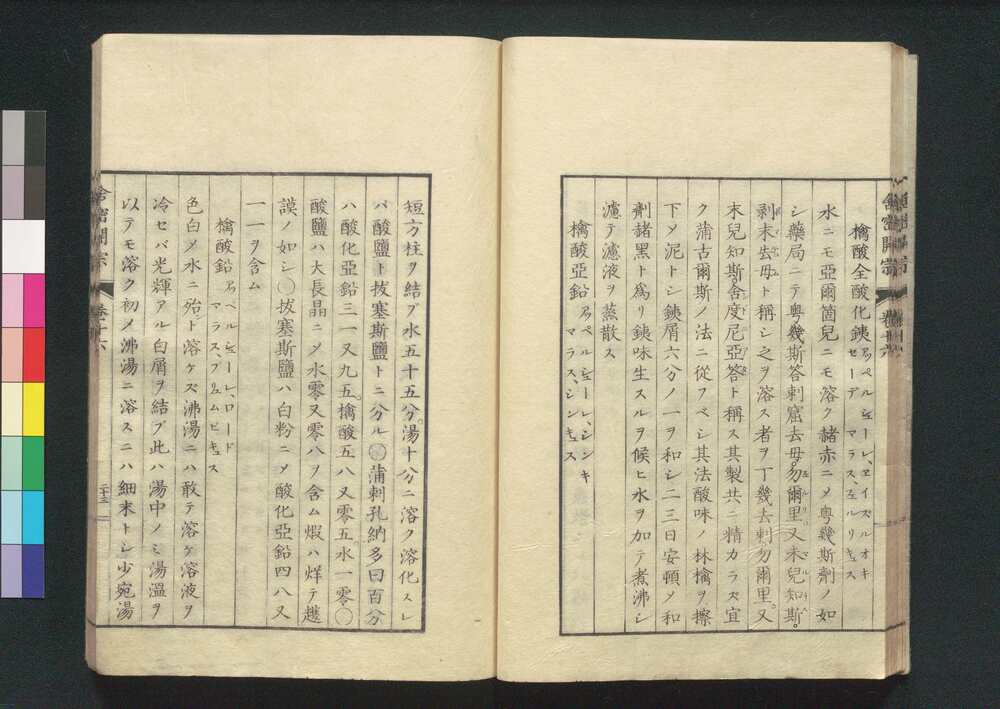 檎酸全酸化銕 アッペルシューレ、エイズルオキ
セーデ マラス、ヱルリキュス
水ニモ亞爾箇兒ニモ溶ク赭赤ニメ粤幾斯劑ノ如
シ藥局ニテ粤幾斯答剌窟去母易爾里又末兒知斯。
剥末去母ト稱シ之ヲ溶ス者ヲ丁幾去剌勿爾里。又
末兒知斯、舍度尼亞答ト稱ス其製共ニ精カラズ宜
ク蒲古爾斯ノ法ニ從フベシ其法酸味ノ林檎ヲ擦
下メ泥トシ銕屑六分ノ一ヲ和シ二三日安頓メ和
劑諸黑ト爲リ銕味生スルヲ候ヒ水ヲ加テ煮沸シ
濾テ濾液ヲ蒸散ス
檎酸亞鉛 アッペルシューレ、シンキ
マラス、シンキュス
短方柱ヲ結ブ水五十五分。湯十分ニ溶ク溶化スレ
バ酸鹽ト拔塞斯鹽トニ分ル○蒲剌孔納多曰百分
ハ酸化亞鉛三一又九五。檎酸五八又零五。水一零○
酸鹽ハ大長晶ニメ水零又零八ヲ含ム煆ハ烊テ護
謨ノ如シ○拔塞斯鹽ハ白粉ニメ酸化亞鉛四八又
一一ヲ含ム
檎酸鉛 アッペルシューレ、ロード
マラス、プリュムビキュス
色白メ水ニ殆ト溶ケズ沸湯ニハ敢テ溶ケ溶液ヲ
冷セバ光輝アル白屑ヲ結ブ此ハ湯中ノミ湯溫ヲ
以テモ溶ク初メ沸湯ニ溶スニハ細末トシ少宛湯
舍密開宗
卷十六
二十三